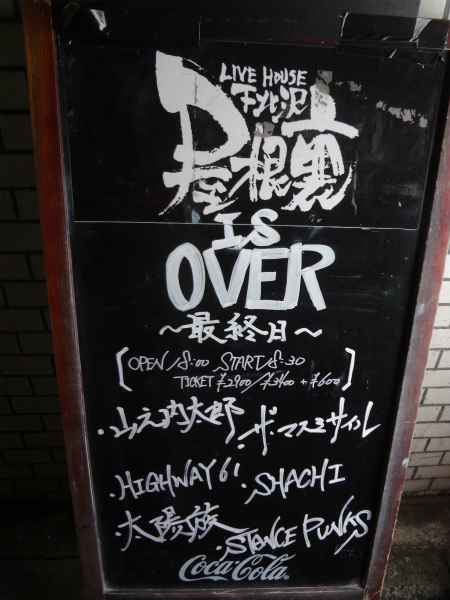 LIVE HOUSE
下北沢
屋根裏
IS
OVER
～最終日～
OPEN 18:00 START 18:30
TICKET ¥2900/¥3400 +¥600
・山之内太郎 ・ザ・マスミサイル
・HIGHWAY61 ・SHACHI
・太陽族 ・STANCE PUNKS
Coca-Cola